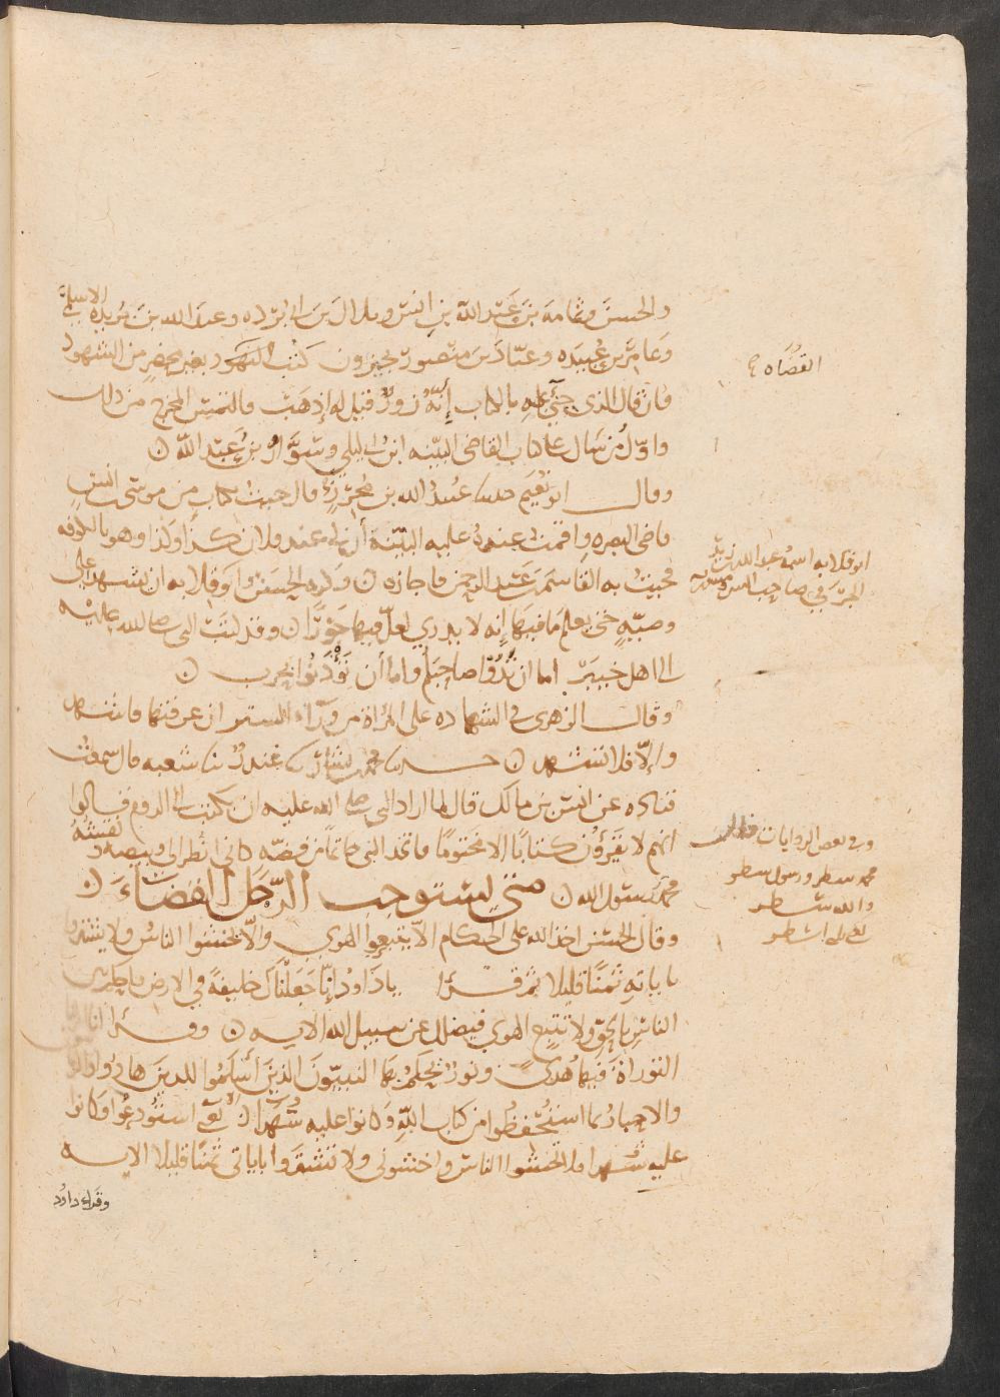 والحسن وثمامة بن عبد الله بن انس وبلال بن ابى بردة وعبد الله بن بريدة الاسلمي
وعامر بن عبيده وعباد بن منصور يجيزون كتب القضاه بغير محضر من الشهود
القضاه
فان قال الذى جيّ عليه بالكتاب إنّه زورٌ قيل له إذهب فالتمس المخرج من ذلك
واوّل من سال على كتاب القاضى البينه ابن ابى ليلي وسوّار بن عبد الله ن
وقال ابو نعيم حدثنا عبيد الله بن محرز قال جيت بكتاب من موسى بن انس
قاضى البصره واقمت عنده عليه البيّنة أن لى عند فلان كذا وكذا وهو بالكوفه
فجيت به القاسم بن عبد الرحمن فاجازه ن وكره الحسن وابو قلابه ان يشهد على
ابو قلابه اسمه عبد الله بن زيد
الجرمي صاحب
وصيّهٍ حتى يعلم ما فيها إنه لا يدري لعلّ فيها جَورًا ن وقد كتب النبى صلى الله عليه
الى اهل خيبر اما ان تدُوا صاحبكم واما أن تؤذنوا بحرب ن
وقال الزهرى فى الشهاده على المرأة من ورآء الستر ان عرفتها فاشهد
وإلّا فلا تشهد ن حدثنا محمد بن بشار نا غندرٌ نا شعبه قال سمعت
قتاده عن انس بن مالك قال لما اراد النبى صلى الله عليه ان يكتب الى الروم قالوا
انهم لا يقرؤن كتابًا الا مختومًا فاتخذ النبى خاتمًا من فضّه كانى انظر الى وبيصه ونقشهُ
وفى بعض الروايات
محمد سطر ورسول سطر
والله سطر
محمد رسول الله ن متى يستوجب الرّجل القضاءَ ن
وقال الحسن اخذ الله على الحكام الّا يتبعوا الهوي والّا يخشوا الناس ولا يشتروا
باياته ثمنًا قليلا ثم قرا يا داوُد إنّا جعلناك خليفةً في الارض فاحكم بين
الناس بالحق ولا تتبع الهوي فيضلك عن سبيل الله الايه ن وقرأ انا انزلنا
التوراة فيها هُدىً ونورٌ يحكم بها النبيّون الذين أسلموا للذين هادوا والربانيون
والاحبار بما استُحفظُوا من كتاب الله وكانوا عليه شهدآ ن استُودعُوا وكانوا
عليه شهدا فلا تخشوا الناس واخشونى ولا تشتروا باياتى ثمنًا قليلا الايه
وقرا داوُد